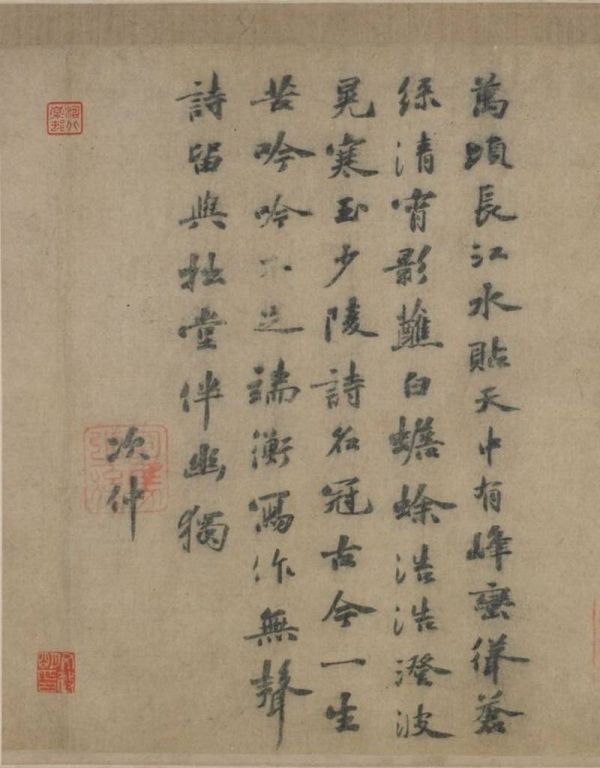 萬頃長江水貼天中有峰巒聳蒼
綠清宵影蘸白蟾蜍浩浩澄波
晃寒玉少陵詩名冠古今一生
苦吟吟不足端衡寫作無聲
詩留與拙堂伴幽獨
次仲